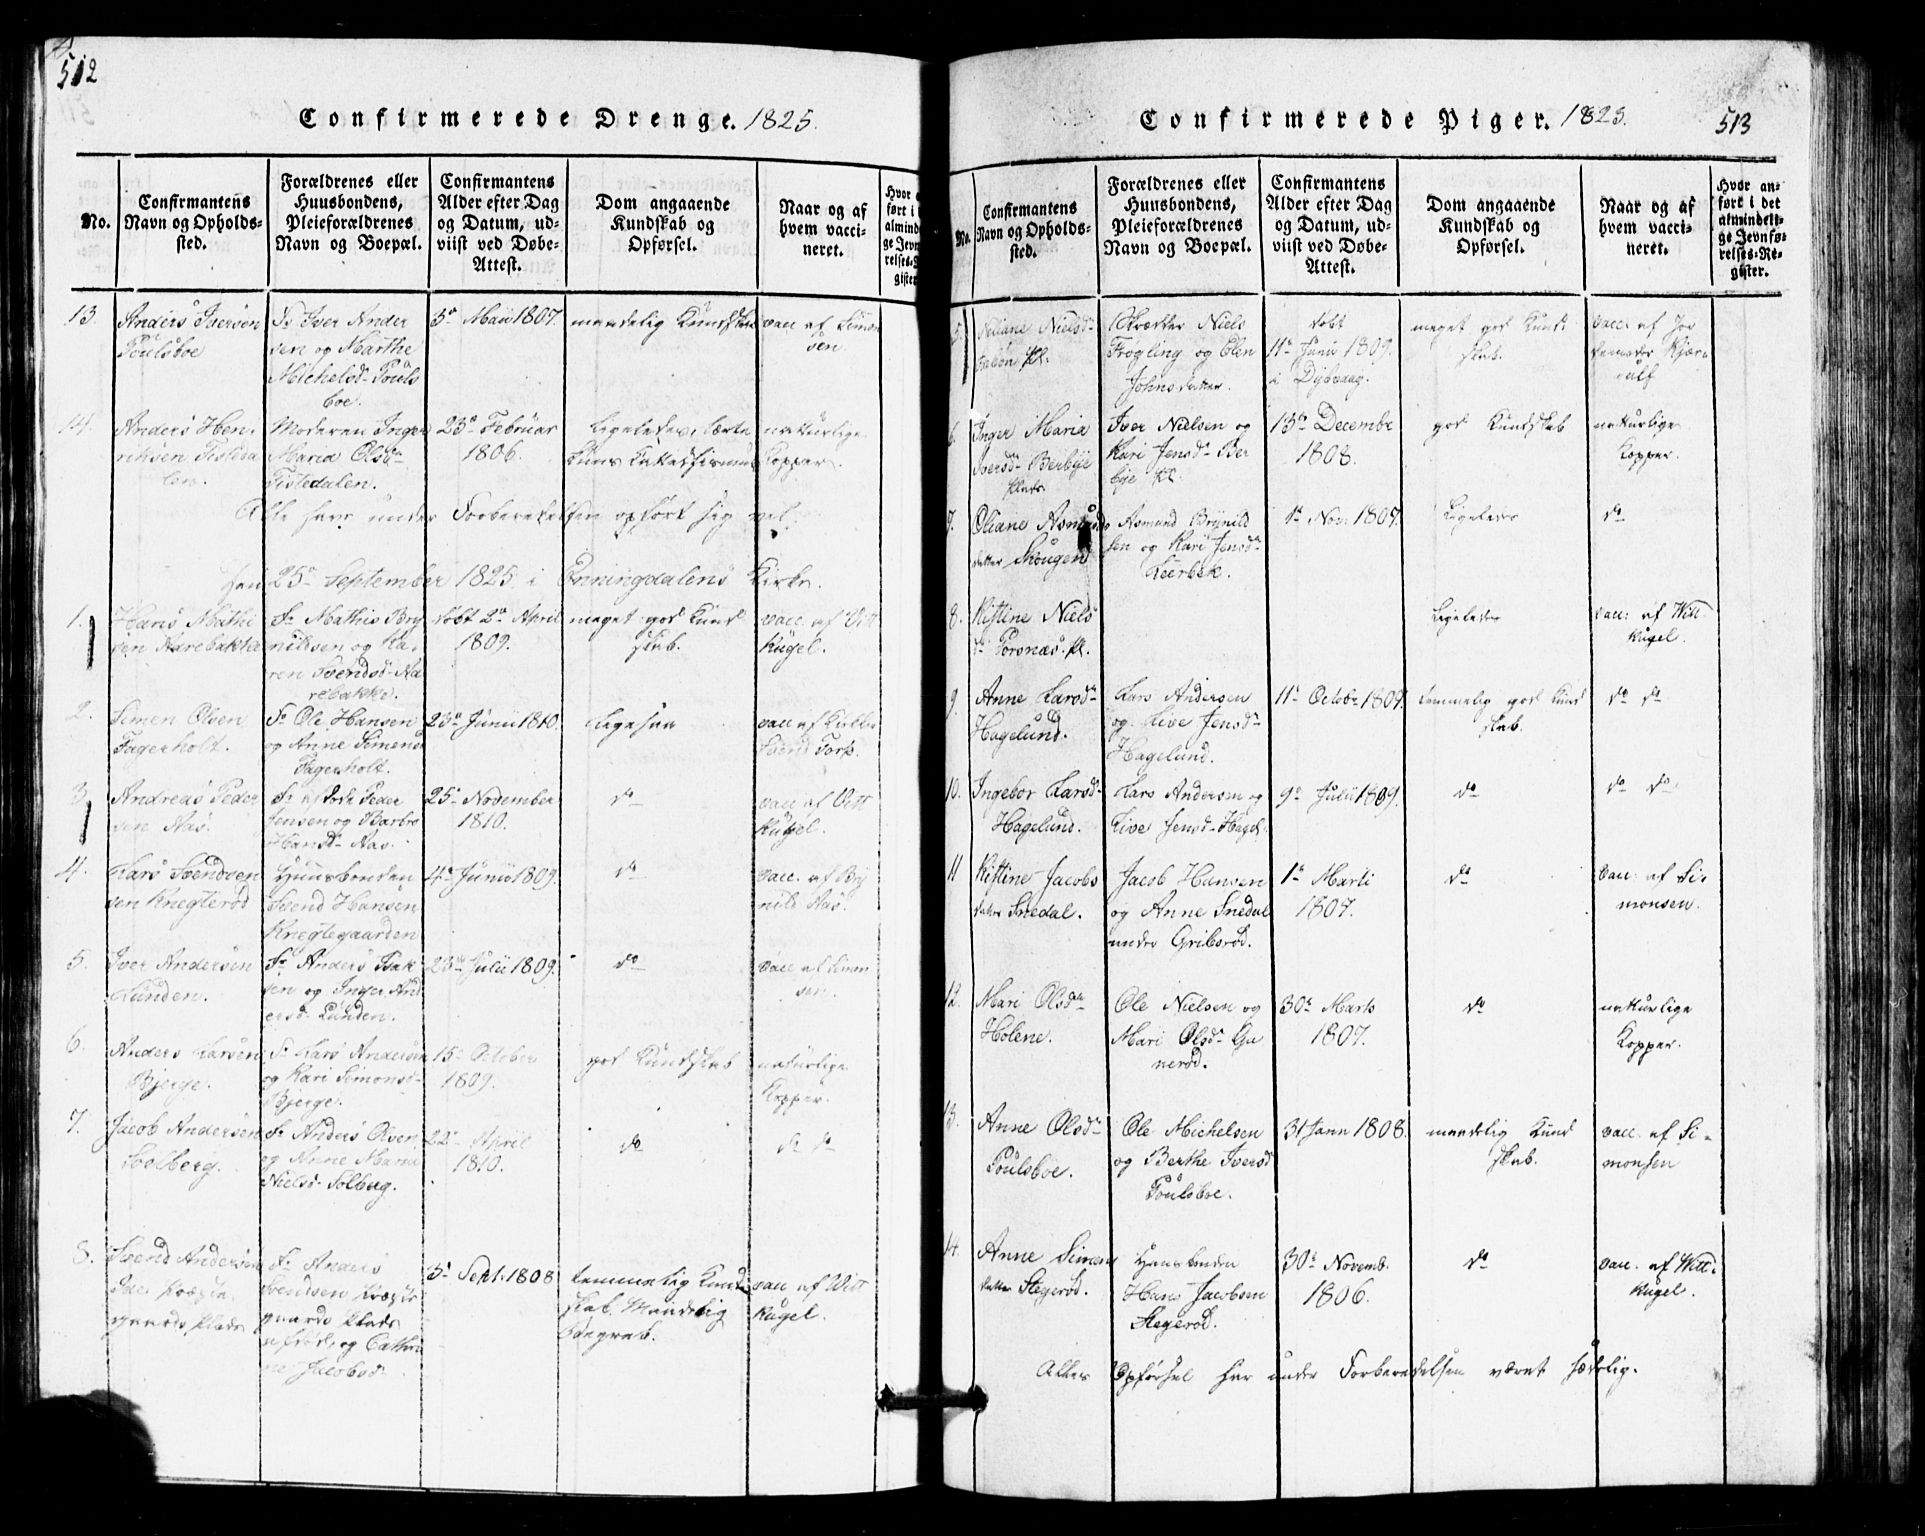 512
Confirmerede Drenge. 1825.
No.
Confirmantens
Navn og Opholds-
sted.
Forældrenes eller
Huusbondens,
Pleieforældrenes
Navn og Boepæl.
Confirmantens
Alder efter Dag
og Datum, ud-
viist ved Døbe-
Attest.
Dom angaaende
Kundskab og
Opførsel.
Naar og af
hvem vacci-
neret.
13.
Anders Iversen
Poulsboe
Fr Iver Ander
sen og Marthe
Michelsd- Pouls
boe.
5te Maii 1807.
maadelig Kundskab
vacc af Simon
sen.
14.
Anders Hen-
riksen Tisteda
len.
Moderen Inger
Maria Olsdr
Tistedalen.
23de Februar
1806.
naturlige
Kopper.
Alle have under Forberedelsen opført sig vel.
den 25de September 1825 i Enningdalens Kirke.
1.
Hans Mathi
sen Aarebakka
Fr Mathis Bry
nildsen og Ka-
ren Svendsd- Aa
rebakke.
født 2de April
1809.
meget god Kund
skab.
vacc. af Vitt
Kugel.
2.
Simen Olsen
Fagerholt.
Fr Ole Hansen
og Anne Simens
Fagerholt.
23de Junii 1810.
ligesaa
vacc af
Svend Torp.
3.
Andreas Peder
sen Aas.
Fr afdøde Peder
Jensen og Barbro
Hansd- Aas.
25de November
1810.
do
vacc af Vitt
Kugel.
4.
Lars Svendsen
sen Knegterød
Huusbonden
Svend Hansen
Knegtegaarden
4de Junii 1809.
do
vacc. af Bry
nild Aas.
5.
Iver Andersen
Lunden.
Fr Anders Isak-
sen og Inger And
ersd- Lunden.
23de Julii 1809.
do
vacc af Simon
sen.
6.
Anders Larsen
Bjerge.
Fr Lars Andersen
og Kari Simonsd-
Bjerge.
15de October
1809.
god Kundskab
naturlige
Kopper.
7.
Jacob Andersen
Solberg.
Fr Anders Olsen
og Anne Maria
Nielsd- Solberg.
22de April
1810.
do
do do
8.
Svend Andersen
gaards Plads
Fr Anders
Svendsen
gaards Plads
afdød, og Cathri
ne Jacobsd.
5te Sept. 1808
temmelig Kund
skab. Maadelig
Begreb.
vacc af Witt
Kugel.
513
Confirmerede Piger. 1825.
No.
Confirmantens
Navn og Opholds-
sted.
Forældrenes eller
Huusbondens,
Pleieforældrenes
Navn og Boepæl.
Confirmantens
Alder efter Dag
og Datum, ud-
viist ved Døbe-
Attest.
Dom angaaende
Kundskab og
Opførsel.
Naar og af
hvem vacci-
neret.
Hvor an-
ført i det
almindeli-
ge Jevnfø-
relses-Re-
gister.
5.
Nielsd-
Pl.
Skrædder Niels
Frøgling og Elen
Johnsdatter.
født
11te Junii 1809.
i Dybvaag.
meget god Kund
skab.
vacc. af Jor
demoder Kjær-
ulf
6.
Inger Maria
Iversdr Berbye
Plads.
Iver Nielsen og
Kari Jensd- Ber
bye Pl.
13de Decembr
1808.
god Kundskab
naturlige
Kopper.
7.
Oliane Asmunds
datter Skougen
Asmund Brynild
sen og Kari Jensdr
Leerbek.
1te Nov: 1807.
Ligeledes
do
8.
Kistine Niels
dr Porsnæs. Pl.
Ligeledes
vacc: af Witt-
kugel.
9.
Anne Larsdr
Hagelund.
Lars Andersen
og Live Jensdr
Hagelund.
11te Octobr 1809.
temmelig god Kund
skab.
do do
10.
Ingebor Larsd-
Hagelund.
Lars Andersen og
Live Jensd- Hagel.
9de Julii 1809.
do
do do
11
Kistine Jacobs
datter Snedal.
Jacob Hansen
og Anne Snedal
under Griberød.
1te Martii
1807.
do
vacc: af Si-
monsen.
12.
Mari Olsdr
Holene.
Ole Nielsen og
Mari Olsd- Ga
nerød.
30te Marts
1807.
do
naturlige
Kopper.
13.
Anne Olsdr
Poulsboe.
Ole Michelsen
og Berthe Iversd
Poulsboe.
31 Jann 1808.
maadelig Kund
skab.
vacc. af Si-
monsen
14.
Anne Simens
datter Stegerød.
Huusbonden
Hans Jacobsen
Stegerød.
30te Novemb.
1806.
do
vacc. af Witt-
kugel.
Alles Opførsel har under Forberedelsen været sædelig.